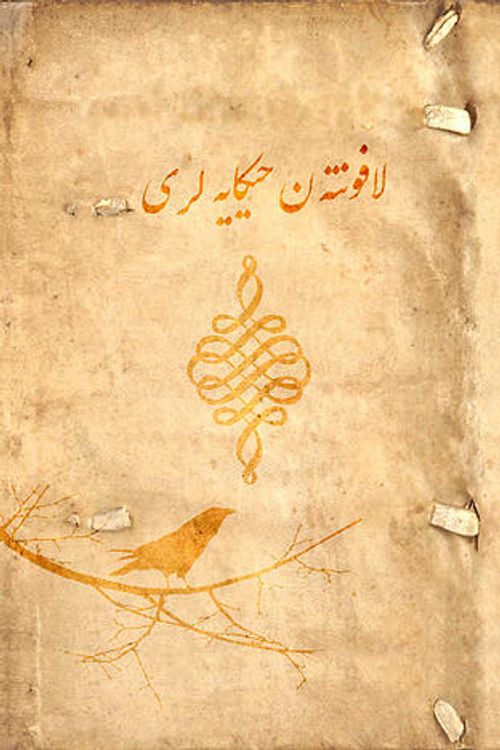 لافونتەن حیکایە لری